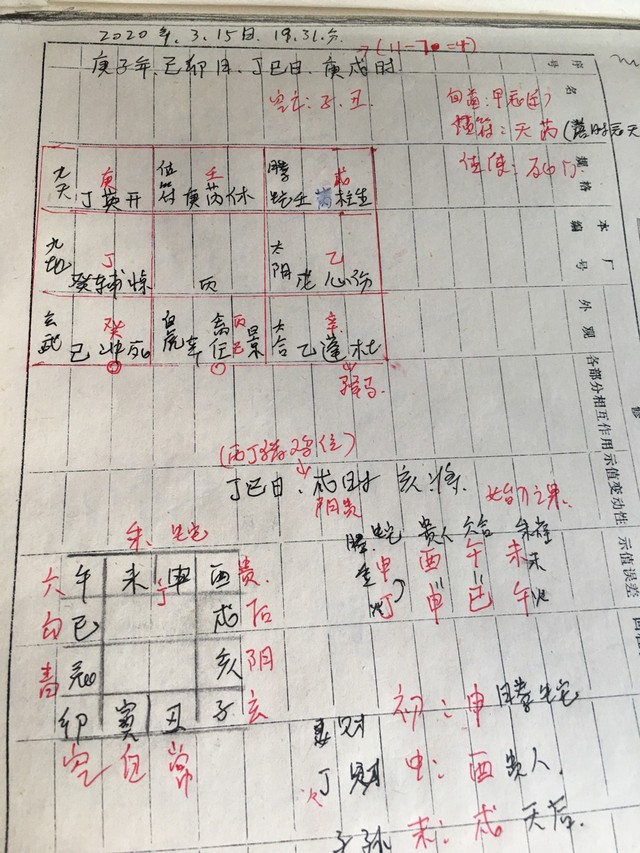 2020年.3.15日.19.31.分
7(11-7=4)
庚子年.己卯月.丁巳日.庚戌时
空亡:子.丑.
旬首:甲辰(壬)
值符:天芮
值使:死门
序号
名
规格
本厂编号
外观
各部分相互作用
示值变动性
示值误差
九天 庚 丁英开
值符 壬 庚芮休
螣蛇 戊 壬 芮 柱生
九地 丁 癸辅惊
丙
太阴 乙 心伤
玄武 癸 己冲死
白虎 辛 禽任 丙己 景
六合 辛 乙蓬杜
驿马
(丙丁猪鸡位)
丁巳日.戌时 亥将.
阴贵
始入课.
朱 蛇
六 午 未 申 酉 贵
丁
勾 巳 戌 后
青 辰 亥 阴
卯 寅 丑 子 玄
空 白 常
螣蛇 贵人 六合 朱雀
申 酉 午 未
丁 申 巳 午
初:申 螣蛇
财
中:酉 贵人.
丁 财
末:戌 天后.
子孙